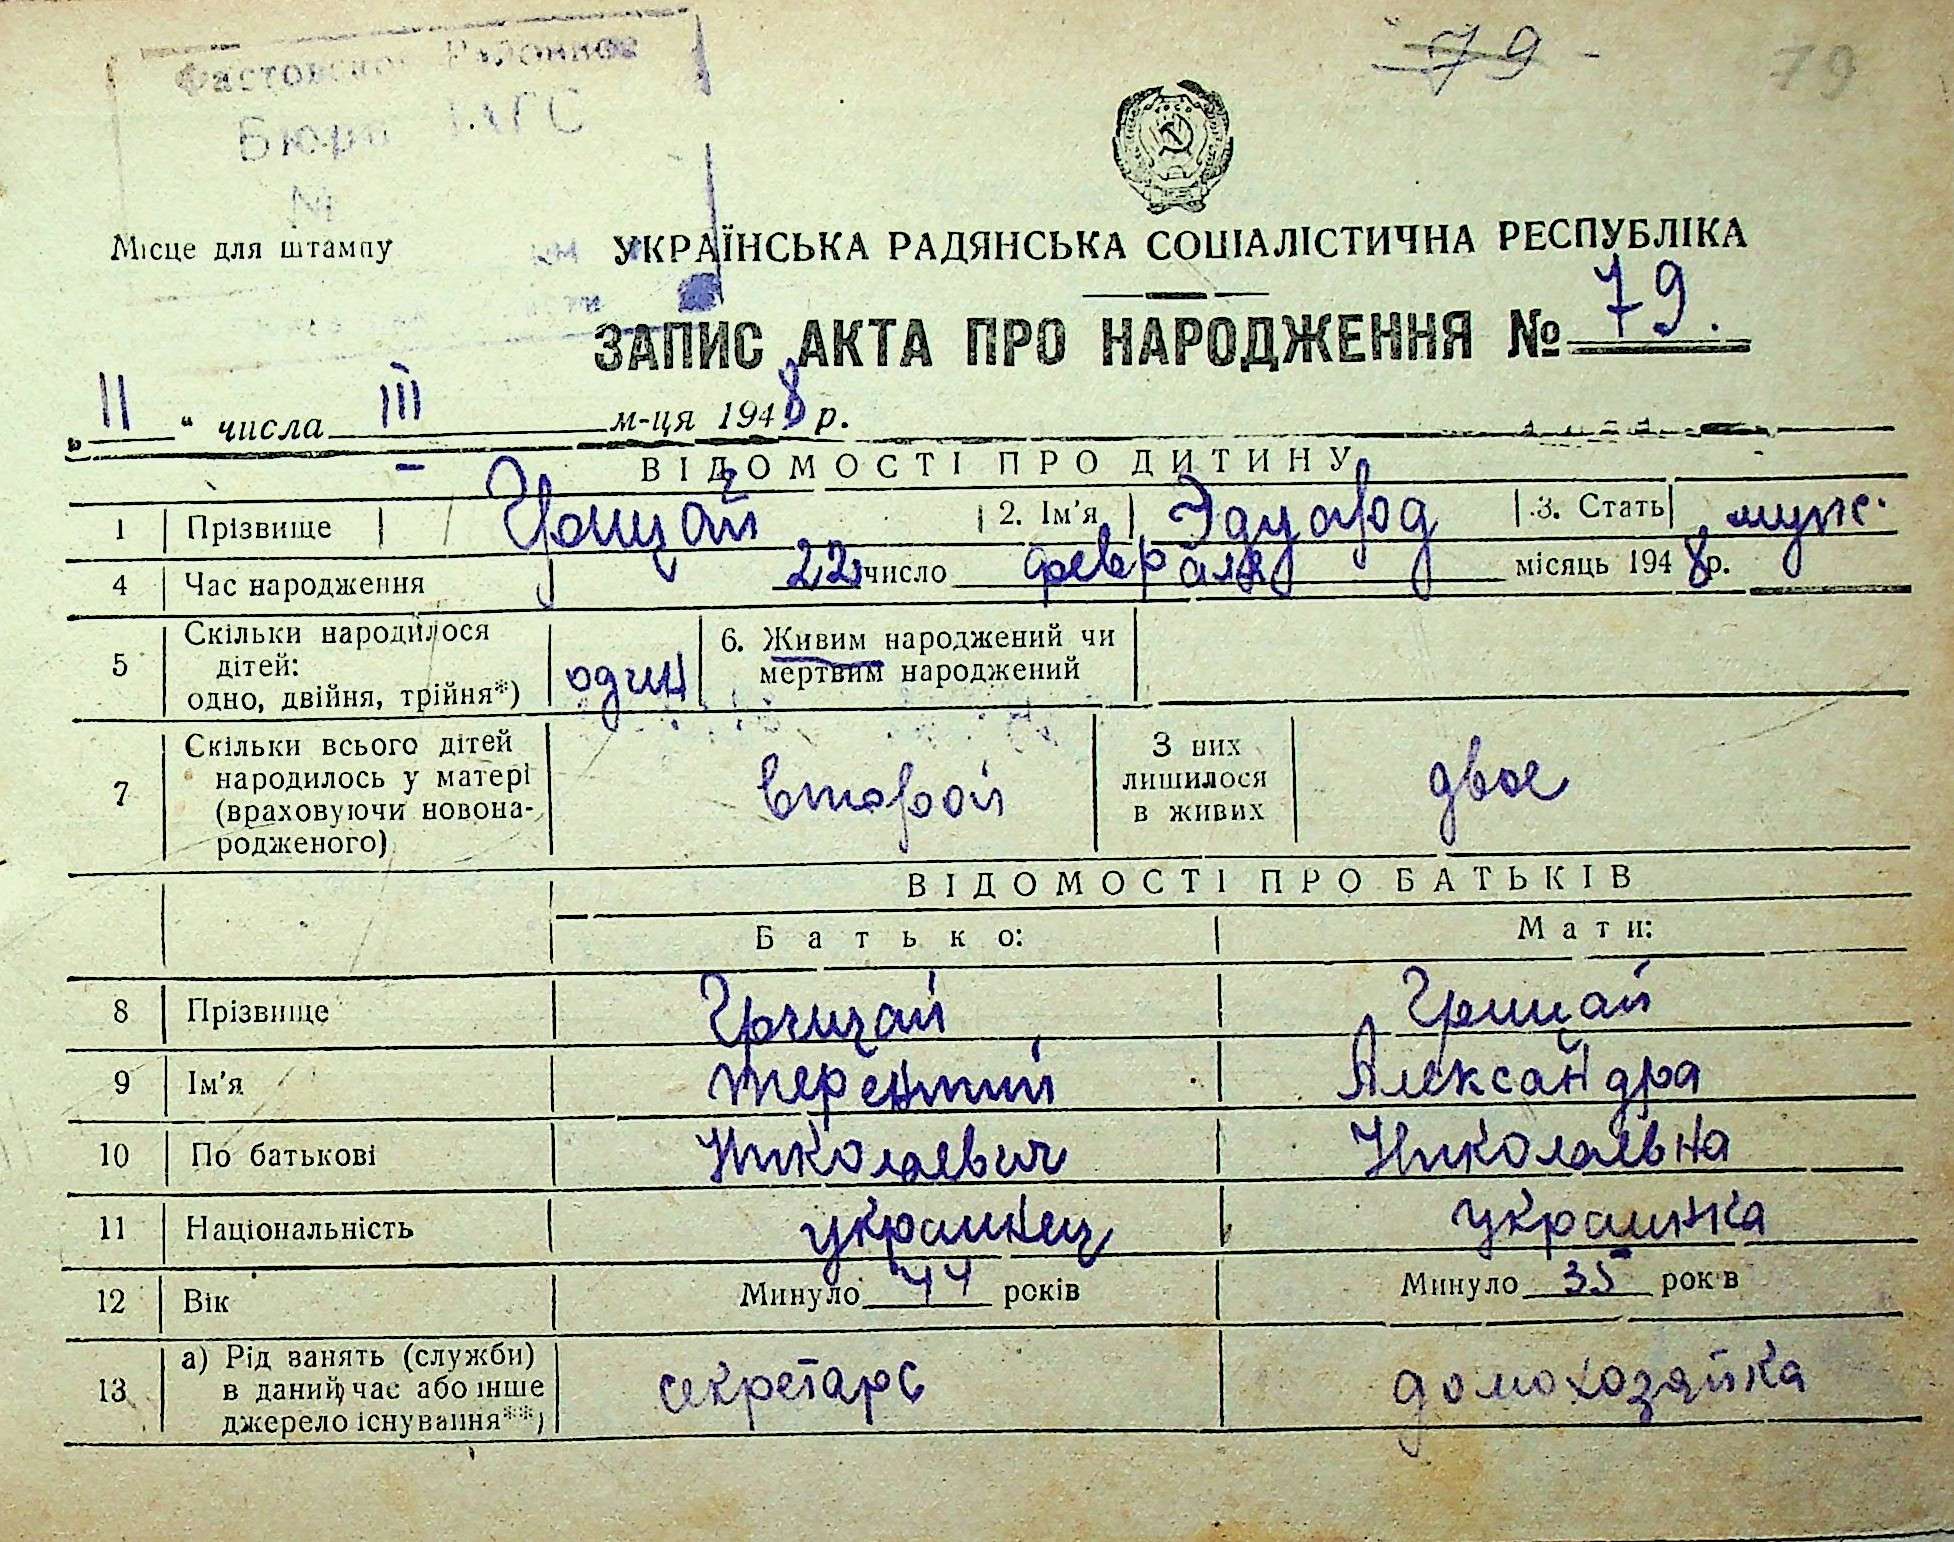 79 - 79
Фастовское Районное
Бюро ЗАГС
№
Місце для штампу
УКРАЇНСЬКА РАДЯНСЬКА СОЦІАЛІСТИЧНА РЕСПУБЛІКА
ЗАПИС АКТА ПРО НАРОДЖЕННЯ № 79.
„ 11 “ числа III м-ця 1948 р.
ВІДОМОСТІ ПРО ДИТИНУ
1 Прізвище Грицай 2. Ім'я Эдуард 3. Стать муж.
4 Час народження 22 число февраля місяць 1948 р.
5 Скільки народилося дітей: одно, двійня, трійня*) один 6. Живим народжений чи мертвим народжений
7 Скільки всього дітей народилось у матері (враховуючи новонародженого) второй З них лишилося в живих двое
ВІДОМОСТІ ПРО БАТЬКІВ
Батько: Мати:
8 Прізвище Грицай Грицай
9 Ім'я Терентий Александра
10 По батькові Николаевич Николаевна
11 Національність украинец украинка
12 Вік Минуло 44 років Минуло 35 років
13 а) Рід занять (служби) в даний час або інше джерело існування**) секретарь домохозяйка